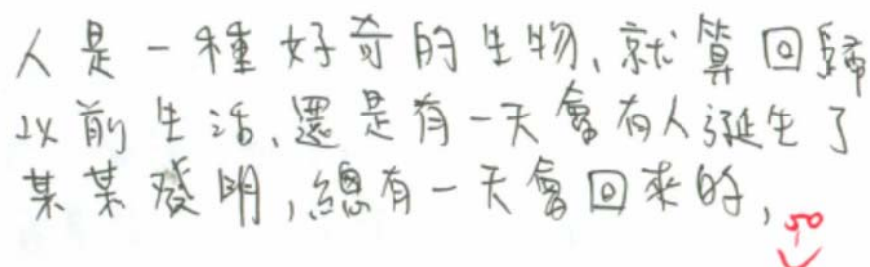 人是一種好奇的生物、就算回歸
以前生活、還是有一天會有人誕生了
某某發明,總有一天會回來的,
50